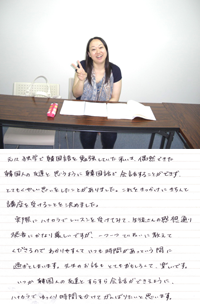 元は独学で韓国語を勉強していた私は、偶然できた
韓国人の友達と思うように韓国語で会話することができず、
とてもくやしい思いをしたことがありました。これをきっかけにきちんと
講座を受けることを決めました。
実際にハイカラでレッスンを受けてみて、お値段の想像通り
発音にかなり厳しいですが、一つ一ついねいに教えて
くださるので わかりやすくて いつも時間があっという間に
過ぎてしまいます。先生のお話もとてもおもしろくて、楽しいです。
いつか韓国人の友達とすらすら会話ができるように、
ハイカラでゆっくり時間をかけてがんばりたいと思います。